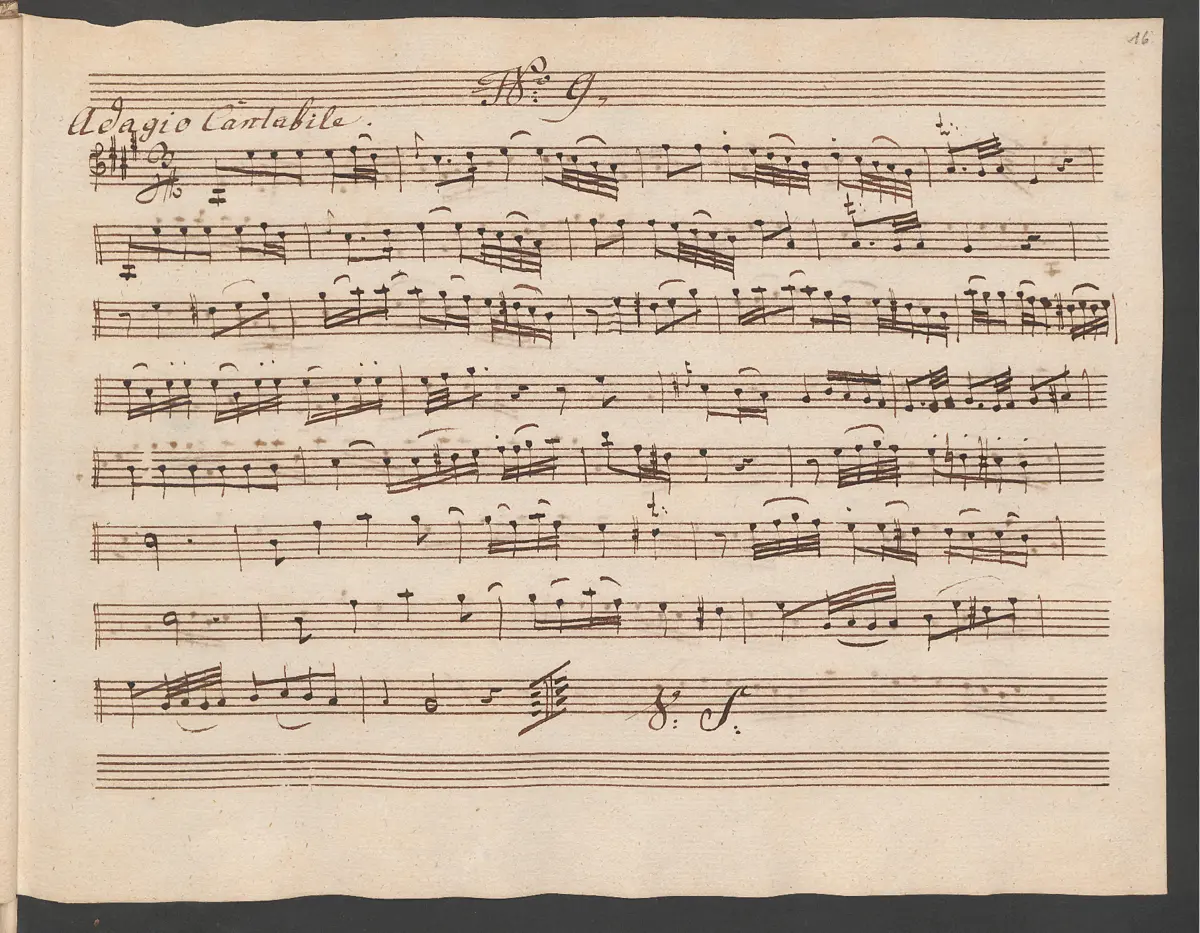 16.
No: 9,
Adagio Cantabile.
t:
t:
t:
V: S: